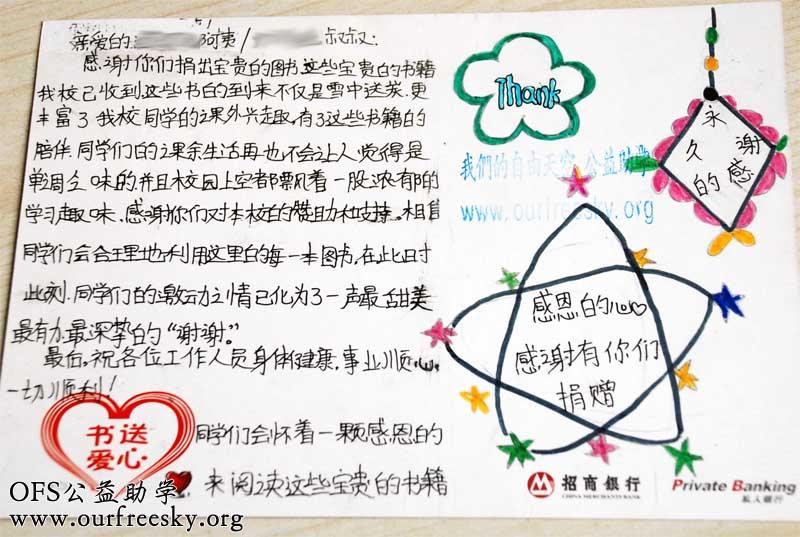 亲爱的 阿姨/ 叔叔:
感谢你们捐出宝贵的图书,这些宝贵的书籍
我校已收到这些书的到来不仅是雪中送炭.更
丰富了我校同学的课外兴趣,有了这些书籍的
陪伴.同学们的课余生活再也不会让人觉得是
单调乏味的,并且校园上空都飘着一股浓郁的
学习趣味.感谢你们对本校的赞助和支持.相信
同学们会合理地利用这里的每一本图书,在此时
此刻.同学们的激动之情已化为了一声最甜美
最有力最深挚的“谢谢。”
最后,祝各位工作人员身体健康.事业顺心.
一切顺利!
同学们会怀着一颗感恩的
来阅读这些宝贵的书籍
书送
爱心
Thank
永久的感谢
我們的自由天空 公益助學
www.ourfreesky.org
感恩的心
感谢有你们
捐赠
招商銀行
CHINA MERCHANTS BANK
Private Banking
私人銀行
OFS公益助学
www.ourfreesky.org